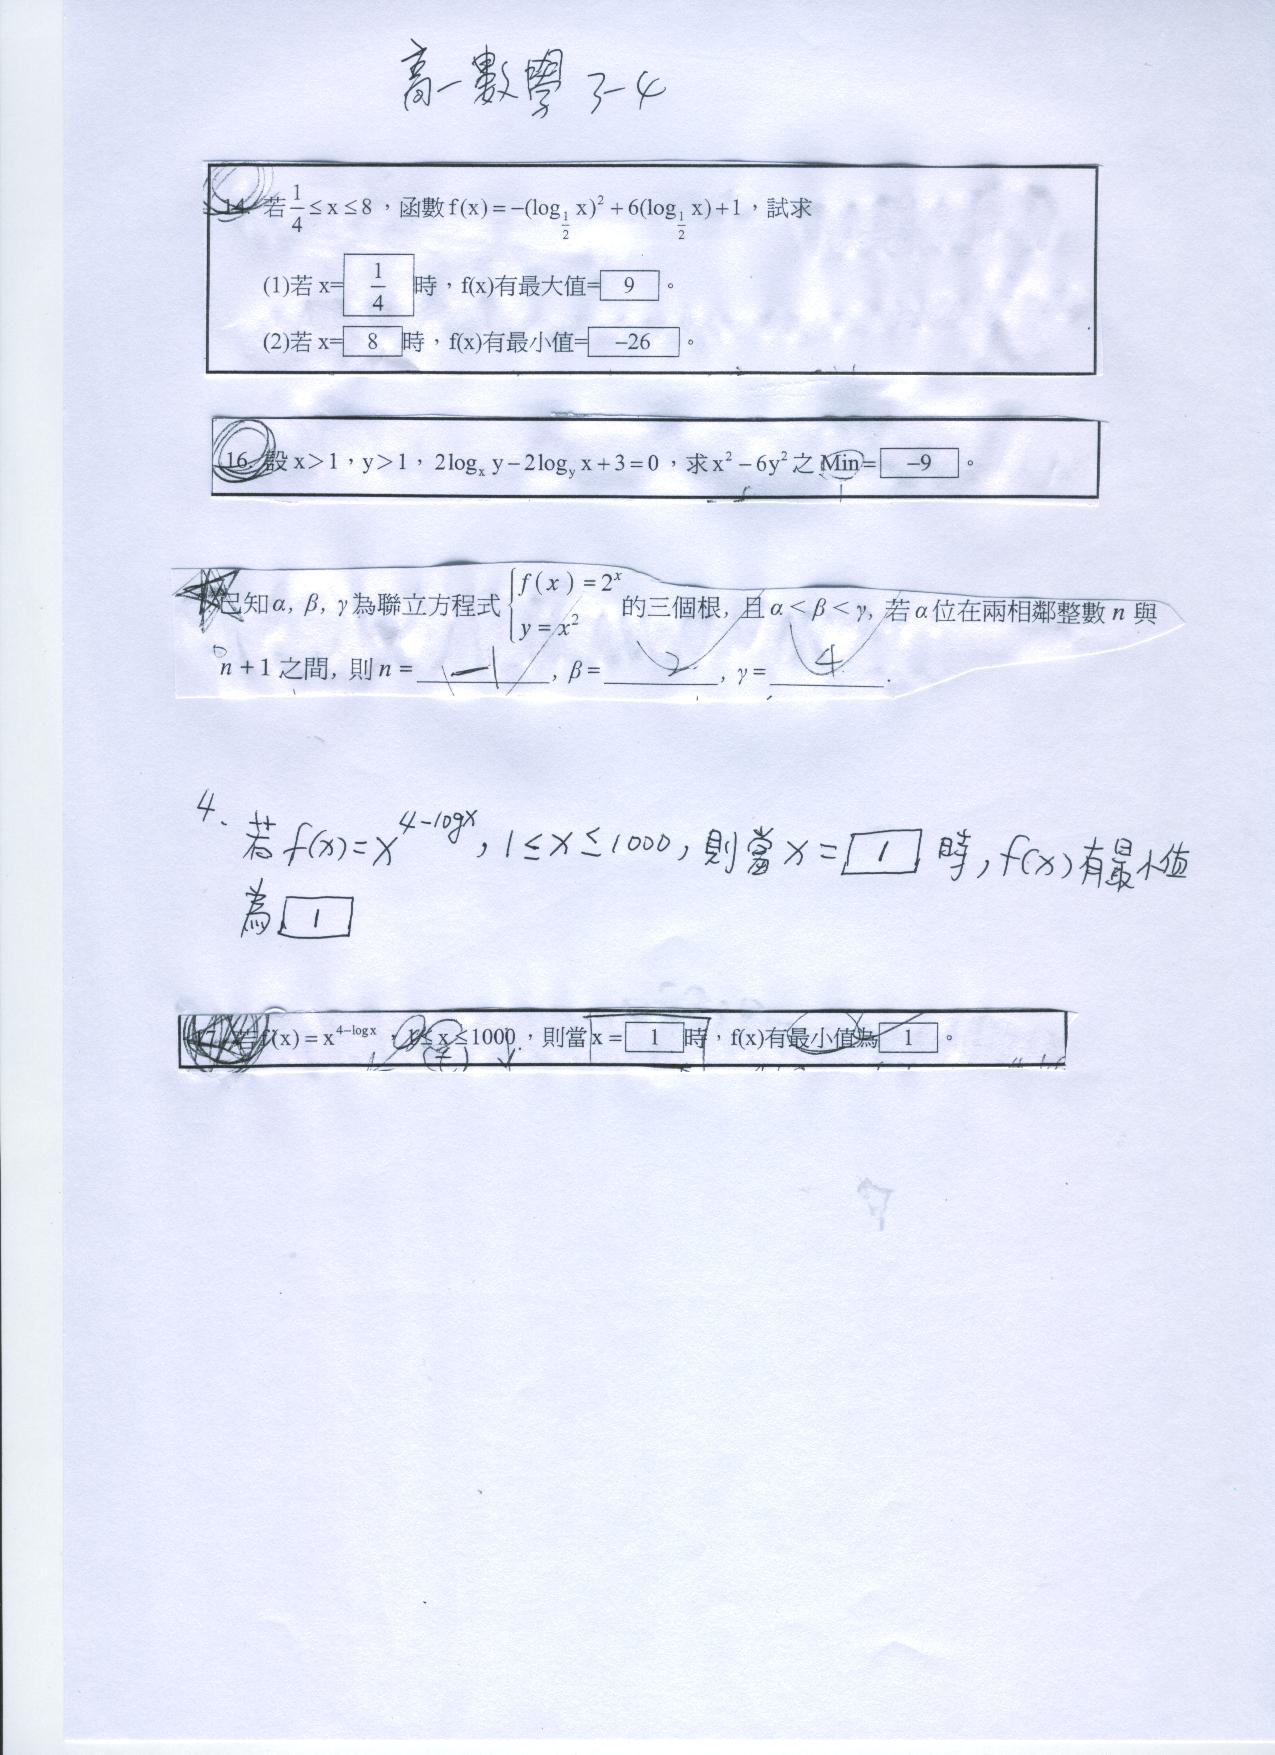 高一數學 3-4
14. 若 1/4 ≤ x ≤ 8，函數 f(x) = −(log_{1/2} x)² + 6(log_{1/2} x) + 1，試求
(1)若 x= 1/4 時，f(x)有最大值= 9 。
(2)若 x= 8 時，f(x)有最小值= −26 。
16. 設 x > 1，y > 1， 2log_x y − 2log_y x + 3 = 0 ，求 x² − 6y² 之 Min = −9 。
已知 α, β, γ 為聯立方程式 { f(x) = 2^x
y = x² 的三個根, 且 α < β < γ, 若 α 位在兩相鄰整數 n 與
n + 1 之間, 則 n = −1 , β = 2 , γ = 4 .
4. 若 f(x) = x^{4−logx}, 1 ≤ x ≤ 1000, 則當 x = 1 時, f(x) 有最小值
為 1
17. 若 f(x) = x^{4−log x} ，1 ≤ x ≤ 1000 ，則當 x = 1 時，f(x)有最小值為 1 。